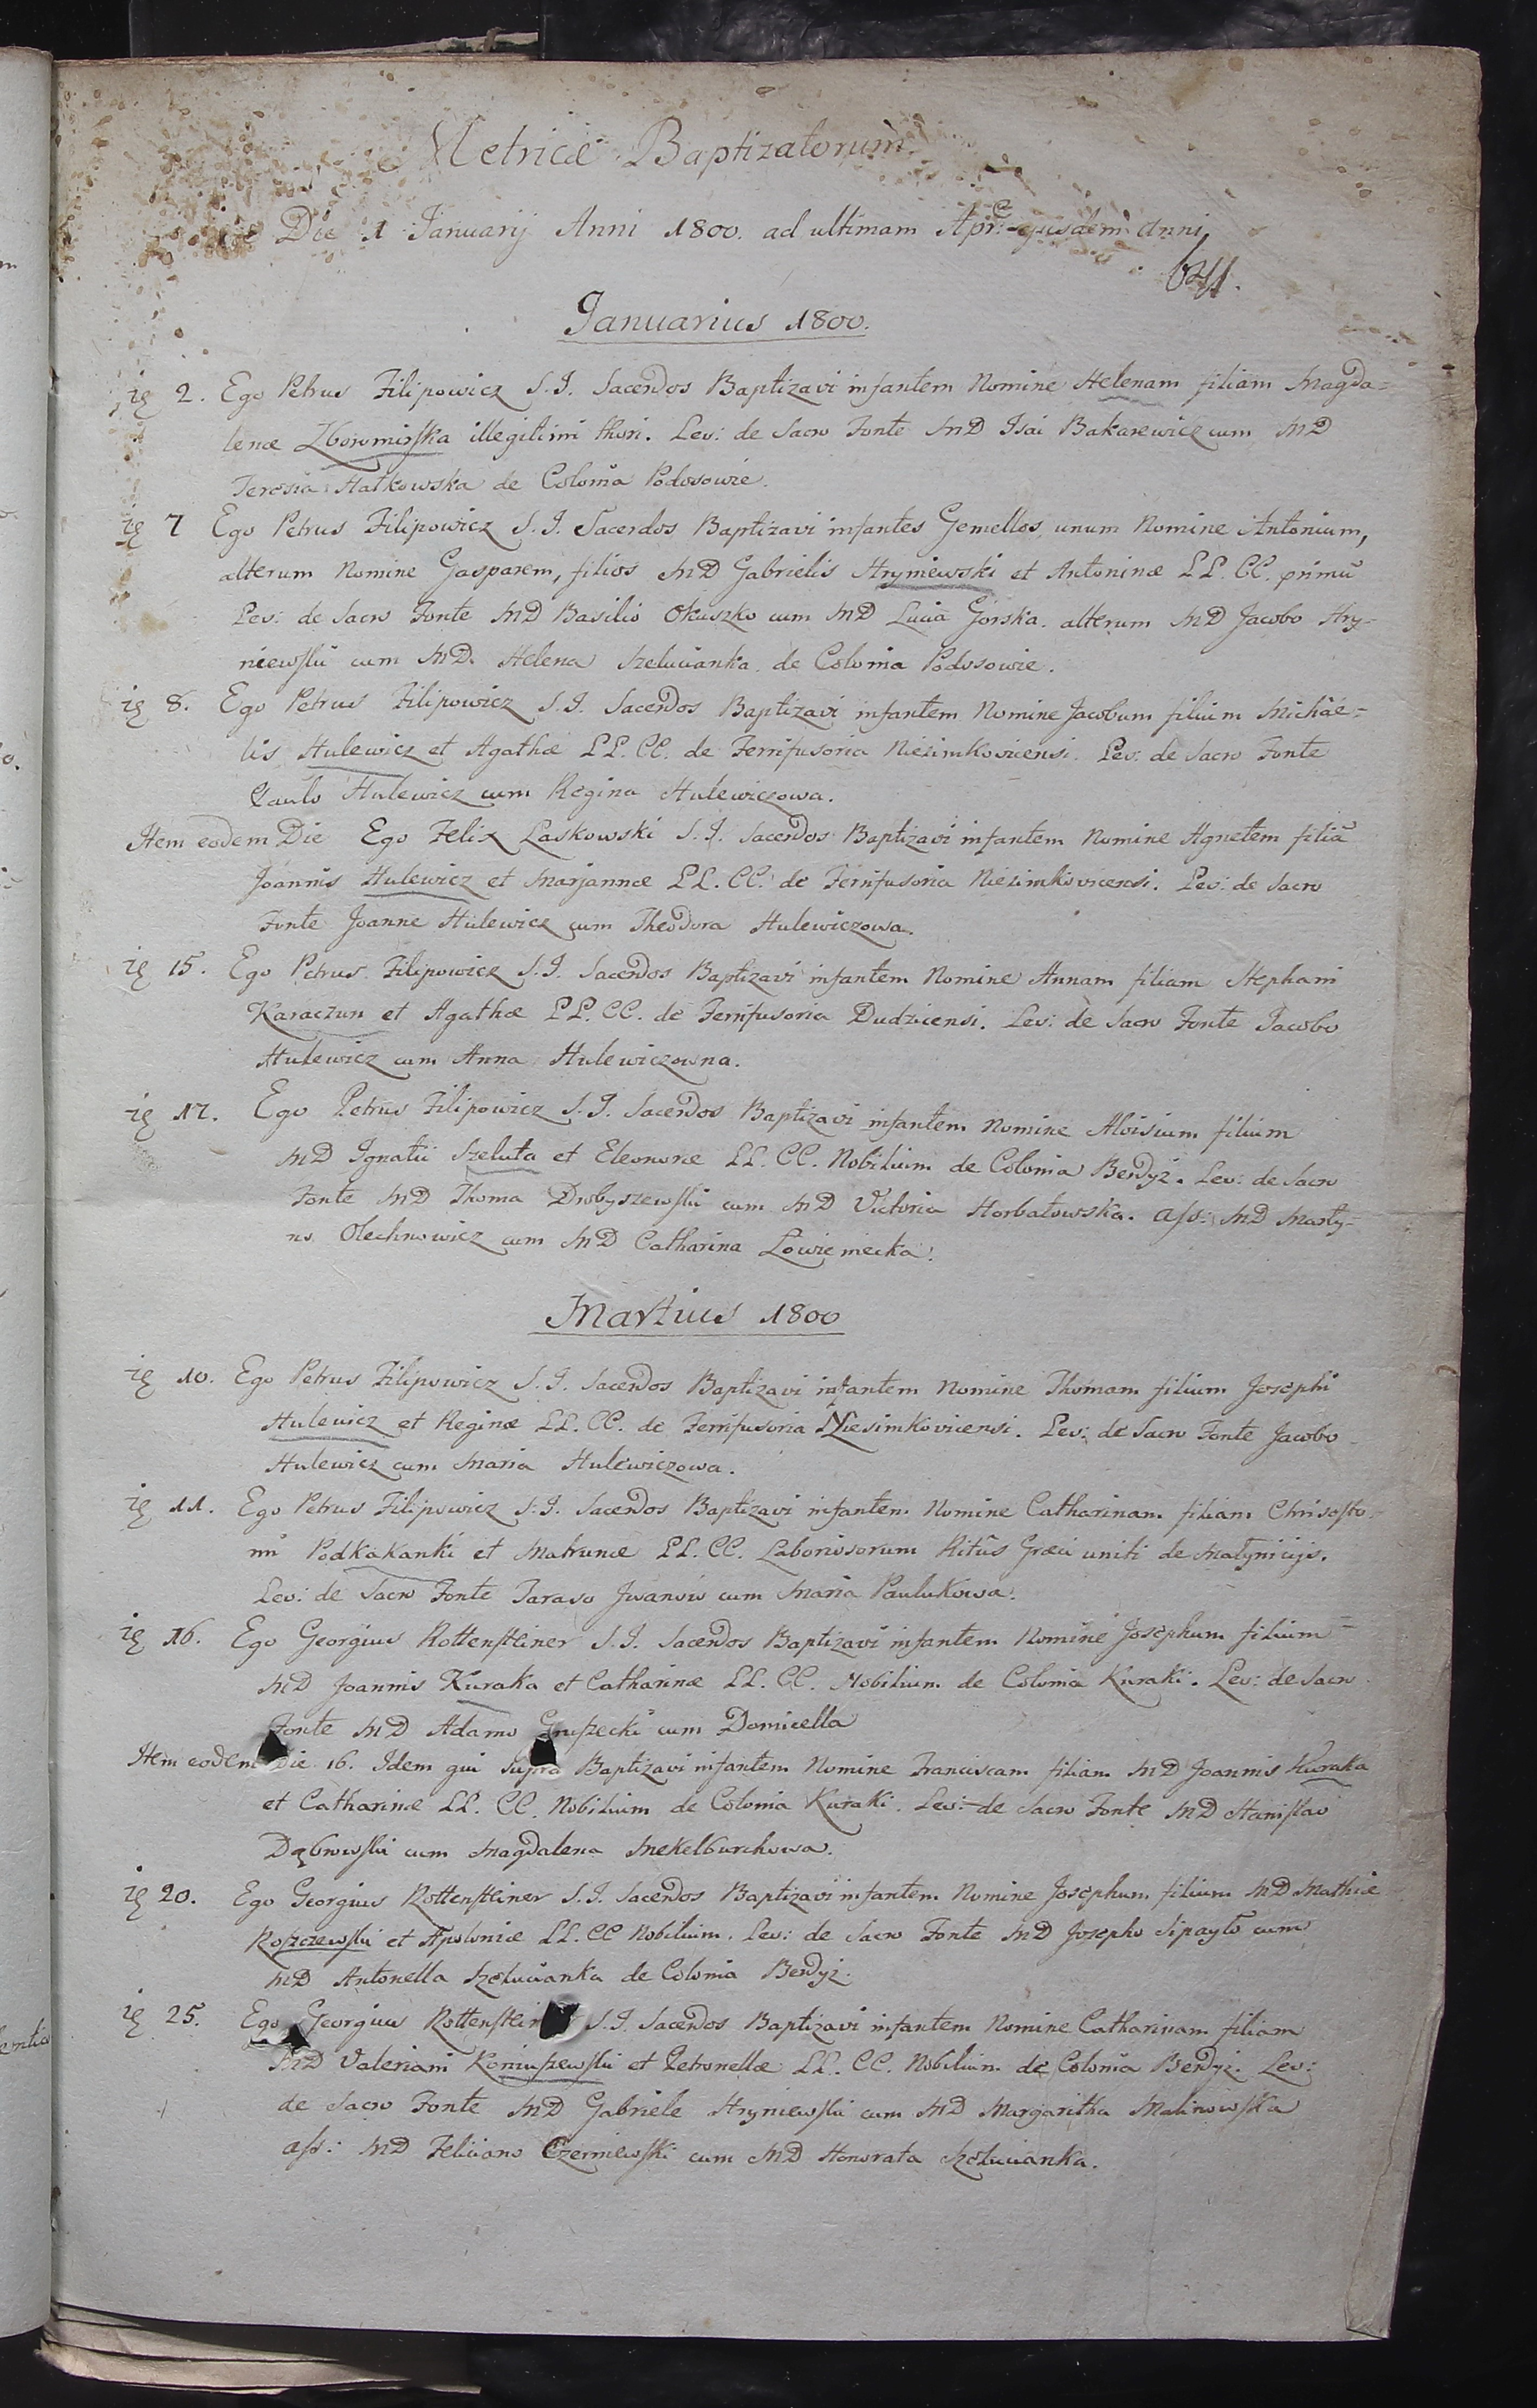 Metricæ Baptizatorum
Die 1 Januarij Anni 1800. ad ultimam Apr: ejusdem Anni,
Januarius 1800.
2. Ego Petrus Filipowicz S.J. Sacerdos Baptizavi infantem Nomine Helenam filiam Magda=
lenæ illegitimi thori. Lev: de Sacro Fonte MD Isai Bakarewicz cum MD
Teresia Hatkowska de Colonia Podosowie.
7 Ego Petrus Filipowicz S.J. Sacerdos Baptizavi infantes Gemellos, unum Nomine Antonium,
alterum Nomine Gasparem, filios MD Gabrielis Hryniewski et Antoninæ LL. CC. primũ
Lev: de Sacro Fonte MD Basilio Okuszko cum MD Lucia Gorska. alterum MD Jacobo Hry-
niewski cum MD. Helena Szelucianka de Colonia Podosowie.
8. Ego Petrus Filipowicz S.J. Sacerdos Baptizavi infantem Nomine Jacobum filium Michae=
lis Hulewicz et Agathæ LL. CC. de Ferrifusoria Niezimkovicensi. Lev: de Sacro Fonte
Paulo Hulewicz cum Regina Hulewiczowa.
Item eodem Die Ego Felix Laskowski S.J. Sacerdos Baptizavi infantem Nomine Agnetem filiã
Joannis Hulewicz et Marjannæ LL. CC. de Ferrifusoria Niezimkovicensi. Lev: de Sacro
Fonte Joanne Hulewicz cum Theodora Hulewiczowa.
15. Ego Petrus Filipowicz S.J. Sacerdos Baptizavi infantem Nomine Annam filiam Stephani
Karaczun et Agathæ LL. CC. de Ferrifusoria Dudzicensi. Lev: de Sacro Fonte Jacobo
Hulewicz cum Anna Hulewiczowna.
17. Ego Petrus Filipowicz S.J. Sacerdos Baptizavi infantem Nomine Aloisium filium
MD Ignatii Szeluta et Eleonoræ LL. CC. Nobilium de Colonia Berdyż. Lev: de Sacro
Fonte MD Thoma Drobyszewski cum MD Victoria Horbatowska. ass: MD Marty-
no Olechnowicz cum MD Catharina Lowieniecka.
Martius 1800
10. Ego Petrus Filipowicz S.J. Sacerdos Baptizavi infantem Nomine Thomam filium Josephi
Hulewicz et Reginæ LL. CC. de Ferrifusoria Niesimkovicensi. Lev: de Sacro Fonte Jacobo
Hulewicz cum Maria Hulewiczowa.
11. Ego Petrus Filipowicz S.J. Sacerdos Baptizavi infantem Nomine Catharinam filiam Chrisosto-
mi Podkakanki et Matrunæ LL. CC. Laboriosorum Ritûs Græci uniti de Malynicijs.
Lev: de Sacro Fonte Taraso Iwanow cum Maria Paulukowa.
16. Ego Georgius Rottensteiner S.J. Sacerdos Baptizavi infantem Nomine Josephum filium
MD Joannis Kuraka et Catharinæ LL. CC. Nobilium de Colonia Kuraki. Lev: de Sacro
Fonte MD Adamo Gruszecki cum Domicella
Item eodem Die 16. Idem qui supra Baptizavi infantem Nomine Franciscam filiam MD Joannis Kuraka
et Catharinæ LL. CC. Nobilium de Colonia Kuraki. Lev: de Sacro Fonte MD Stanislao
Dąbrowski cum Magdalena Mekelburchowa.
20. Ego Georgius Rottensteiner S.J. Sacerdos Baptizavi infantem Nomine Josephum filium MD Mathiæ
Roszczewski et Apoloniæ LL. CC Nobilium. Lev: de Sacro Fonte MD Josepho Sipayło cum
MD Antonella Szelucianka de Colonia Berdyż.
25. Ego Georgius S.J. Sacerdos Baptizavi infantem Nomine Catharinam filiam
MD Valeriani Koniuszewski et Petronellæ LL. CC. Nobilium de Colonia Berdyż. Lev:
de Sacro Fonte MD Gabriele Hryniewski cum MD Margaritha Malinowska
ass: MD Feliciano Czerniewski cum MD Honorata Szelucianka.